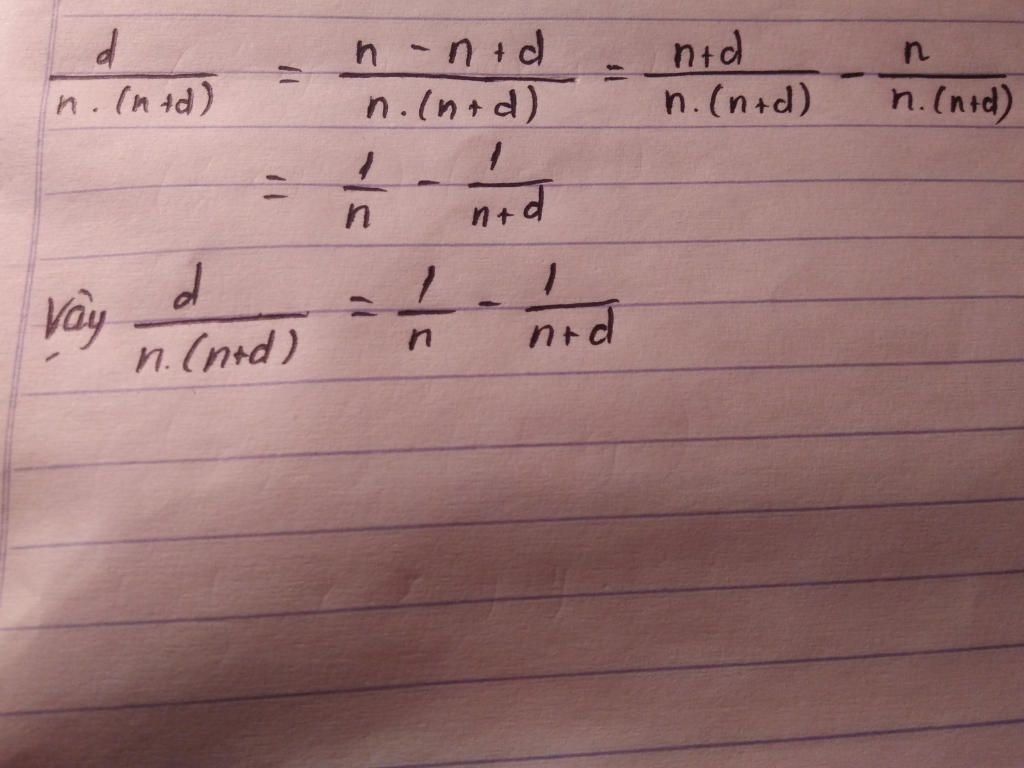 d/(n . (n+d)) = (n - n + d)/(n . (n+d)) = (n+d)/(n . (n+d)) - n/(n . (n+d))
= 1/n - 1/(n+d)
Vậy d/(n . (n+d)) = 1/n - 1/(n+d)